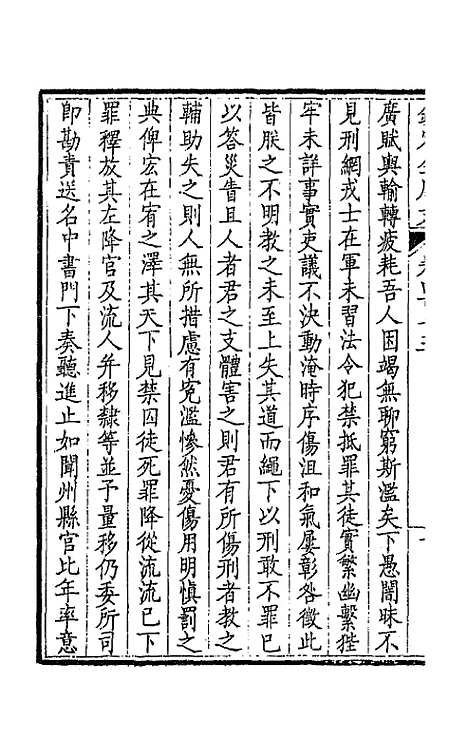 廣賦輿輸轉疲耗吾人困竭無聊窮斯濫矣下愚闇昧不
見刑網戎士在軍未習法令犯禁抵罪其徒實繁幽繫狴
牢未詳事實吏議不決動淹時序傷沮和氣屢彰咎徵此
皆朕之不明教之未至上失其道而繩下以刑敢不罪已
以答災眚且人者君之支體害之則君有所傷刑者教之
輔助失之則人無所措慮有寃濫慘然憂傷用明慎罰之
典俾宏在宥之澤其天下見禁囚徒死罪降從流流已下
罪釋放其左降官及流人并移隸等並予量移仍委所司
即勘責送名中書門下奏聽進止如聞州縣官比年率意